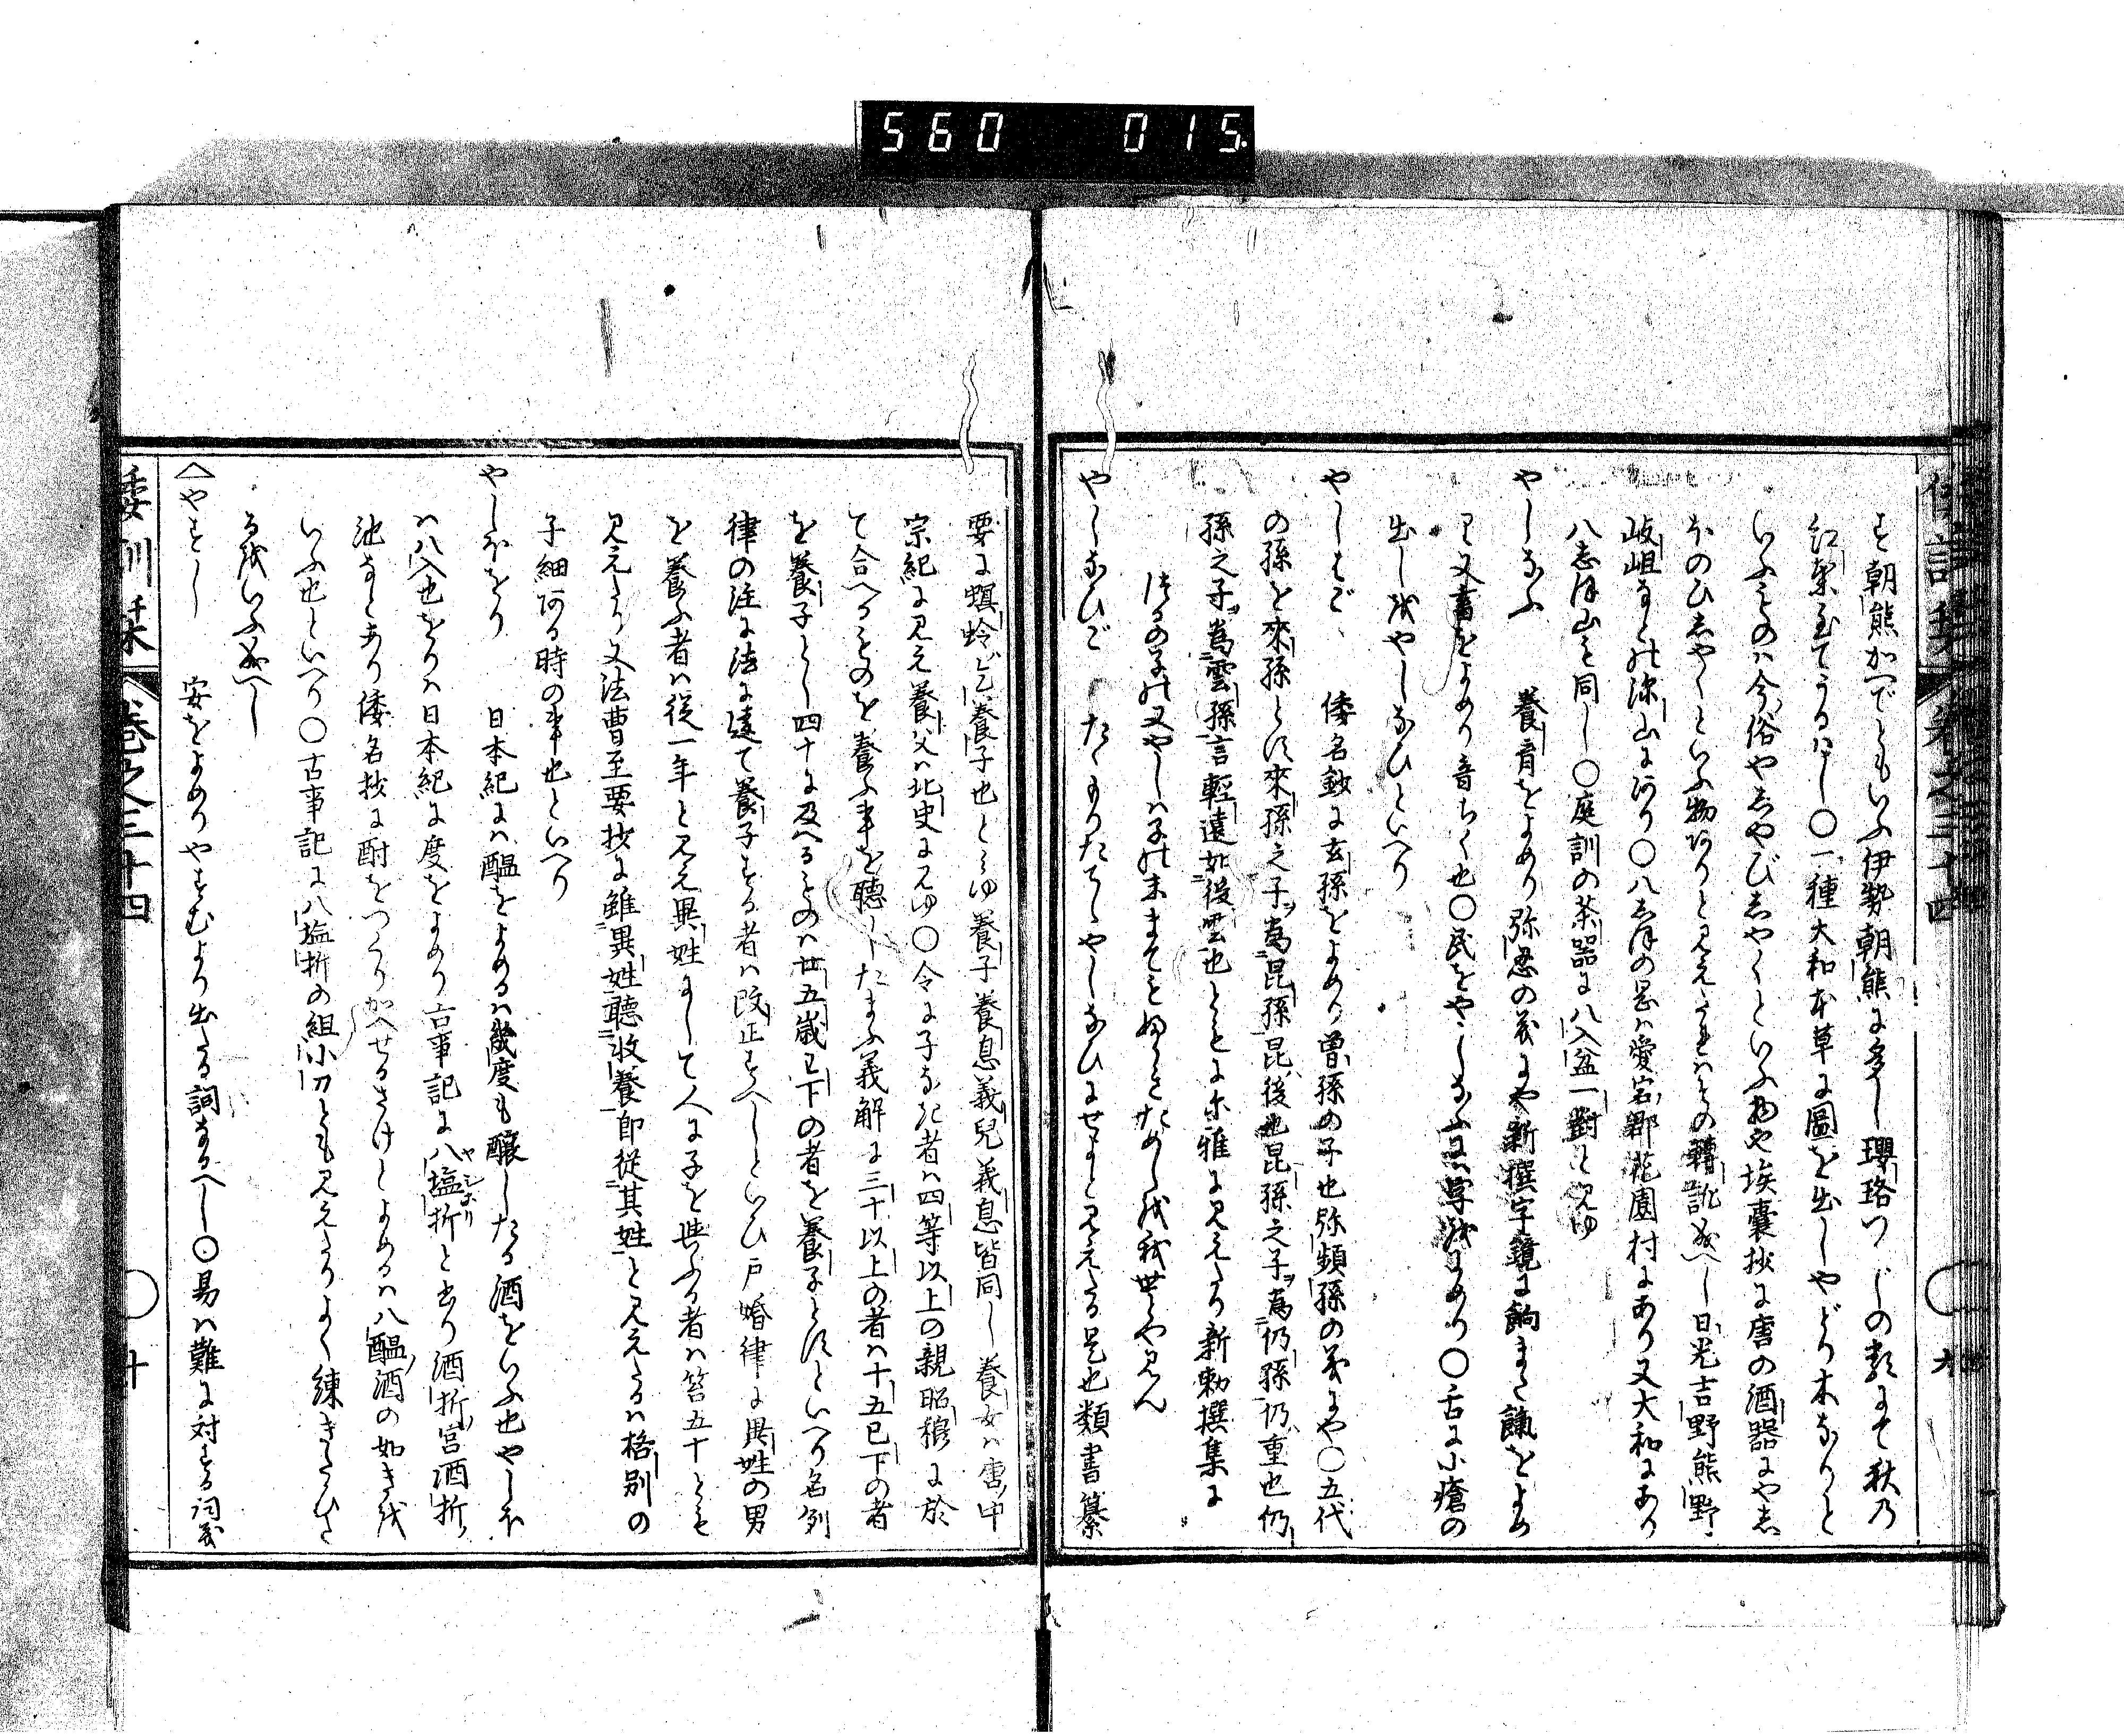 560 015
す朝熊かへでともいふ伊勢朝熊に多し瓔珞つゝじの類にて秋乃
紅葉至てうるはし〇一種大和本草に圖を出しやどり木なりと
いふものハ今俗やしやびしやくといふ物や埃嚢抄に唐の酒器にやし
ほのひしやくといふ物ありと見えたれハその轉訛成へし日光吉野熊野
岐岨などの深山にあり〇八しほの岡ハ愛宕郡花園村にあり又大和にあり
八志ほ山も同し〇庭訓の茶器に八入盆一對と見ゆ
やしなふ 養育をよめり弥忍の義にや新撰字鏡に餉また餼をよめ
り又畜をよめり音ちく也〇民をやしなふに字
〇舌に小瘡の
出しをやしなひといへり
やしはご 倭名鈔に玄孫をよめり曽孫の子也弥頻孫の義にや〇五代
の孫を來孫とす來孫之子ヲ為昆孫昆後也昆孫之子ヲ為仍孫仍重也仍
孫之子ヲ為雲孫言輕遠如浮雲也とともに尓雅に見えたり新勅撰集に
つるの子の又やしハ子の末まてもふるきためしを我世とや見ん
やしなひご たくありたてゝやしなひにせりと見えたる是也類書纂
要に螟蛉ハ乞養子也と見ゆ養子養息義兒義息皆同し養女ハ
宗紀に見え養父ハ北史に見ゆ〇令に子なき者ハ四等以上の親昭穆に於
て合へるものを養ふ事を聴したまふ義解に三十以上の者ハ十五已下の者
を養子とし四十に及へるものハ廿五歳已下の者を養子とすといへり名例
律の注に法に違て養子する者ハ改正すへしといひ戸婚律に異姓の男
を養ふ者ハ徒一年と見え異姓にして人に子を與ふる者ハ笞五十とも
見えたり又法曹至要抄に雖異姓聴收養即從其姓と見えたるハ格別の
子細ある時の事也といへり
やしほをり 日本紀にハ醞をよめるハ幾度も醸したる酒をいふ也やしほ
ハ八入也をりハ日本紀に度をよめり古事記に八塩折ヤシホリと書り酒折宮酒折
池なとあり倭名抄に酎をつくりかへせるさけとよめるハ八醞酒の如きを
いふ也といへり〇古事記に八塩折の組小刀とも見えたりよく練きたひた
るをいふ成へし
△やすし 安をよめりやすむより出たる詞なるへし〇易ハ難に対する詞義
倭訓栞 巻之三十四 〇十